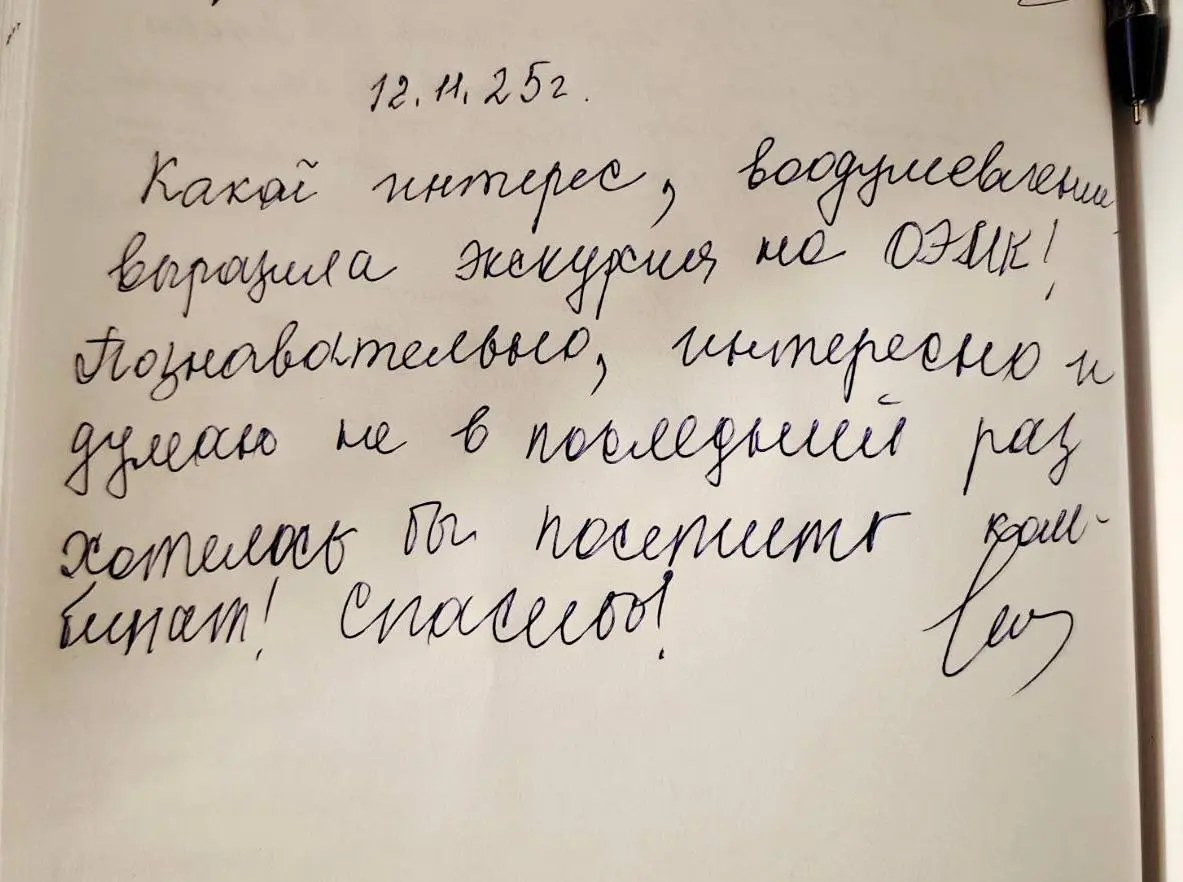 12.11.25г.
Какой интерес, воодушевлении
выразила экскурсия на ОЭМК!
Познавательно, интересно и
думаю не в последний раз
хотелось бы посетить ком-
бинат! Спасибо!